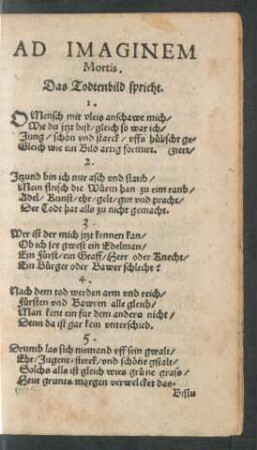 AD IMAGINEM
Mortis.
Das Todtenbild spricht.
1.
O Mensch mit vleis anschawe mich/
Wie du jtzt bist/ gleich so war ich/
Jung/ schön vnd starck/ vffs hübscht ge-
Gleich wie ein Bild artig formirt. ziert/
2.
Itzund bin ich nur asch vnd staub/
Mein fleisch die Würm han zu eim raub/
Adel/ Kunst/ ehr/ gelt/ gut vnd pracht/
Der Todt hat alls zu nicht gemacht.
3.
Wer ist der mich jtzt kennen kan/
Ob ich sey gwest ein Edelman/
Ein Fürst/ ein Graff/ Herr oder Knecht/
Ein Bürger oder Bawer schlecht?
4.
Nach dem tod werden arm vnd reich/
Fürsten vnd Bawren alle gleich/
Man kent ein für dem andern nicht/
Denn da ist gar kein vnterschied.
5.
Drumb las sich niemand vff sein gwalt/
Ehr/ Jugent/ sterck/ vnd schöne gstalt/
Solchs alls ist gleich wies grüne grass/
Heut grunts morgen verwelcket das.
Bistu